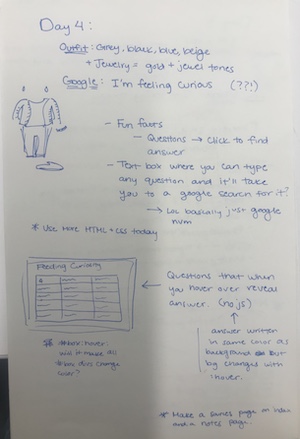 Day 4:
Outfit: Grey, black, blue, beige
+ Jewelry = gold + jewel tones
Google: I'm feeling curious (??!)
- Fun facts
- Questions → click to find
answer
- Text box where you can type
any question and it'll take
you to a google search for it?
→ Lol basically just google
nvm
* Use more HTML + CSS today
Feeding Curiosity
← Questions that when
you hover over reveal
answer. (no js)
answer written
in same color as
background but
bg changes with
:hover.
will it make all
divs change
color?
* Make a series page, an index
and a notes page.